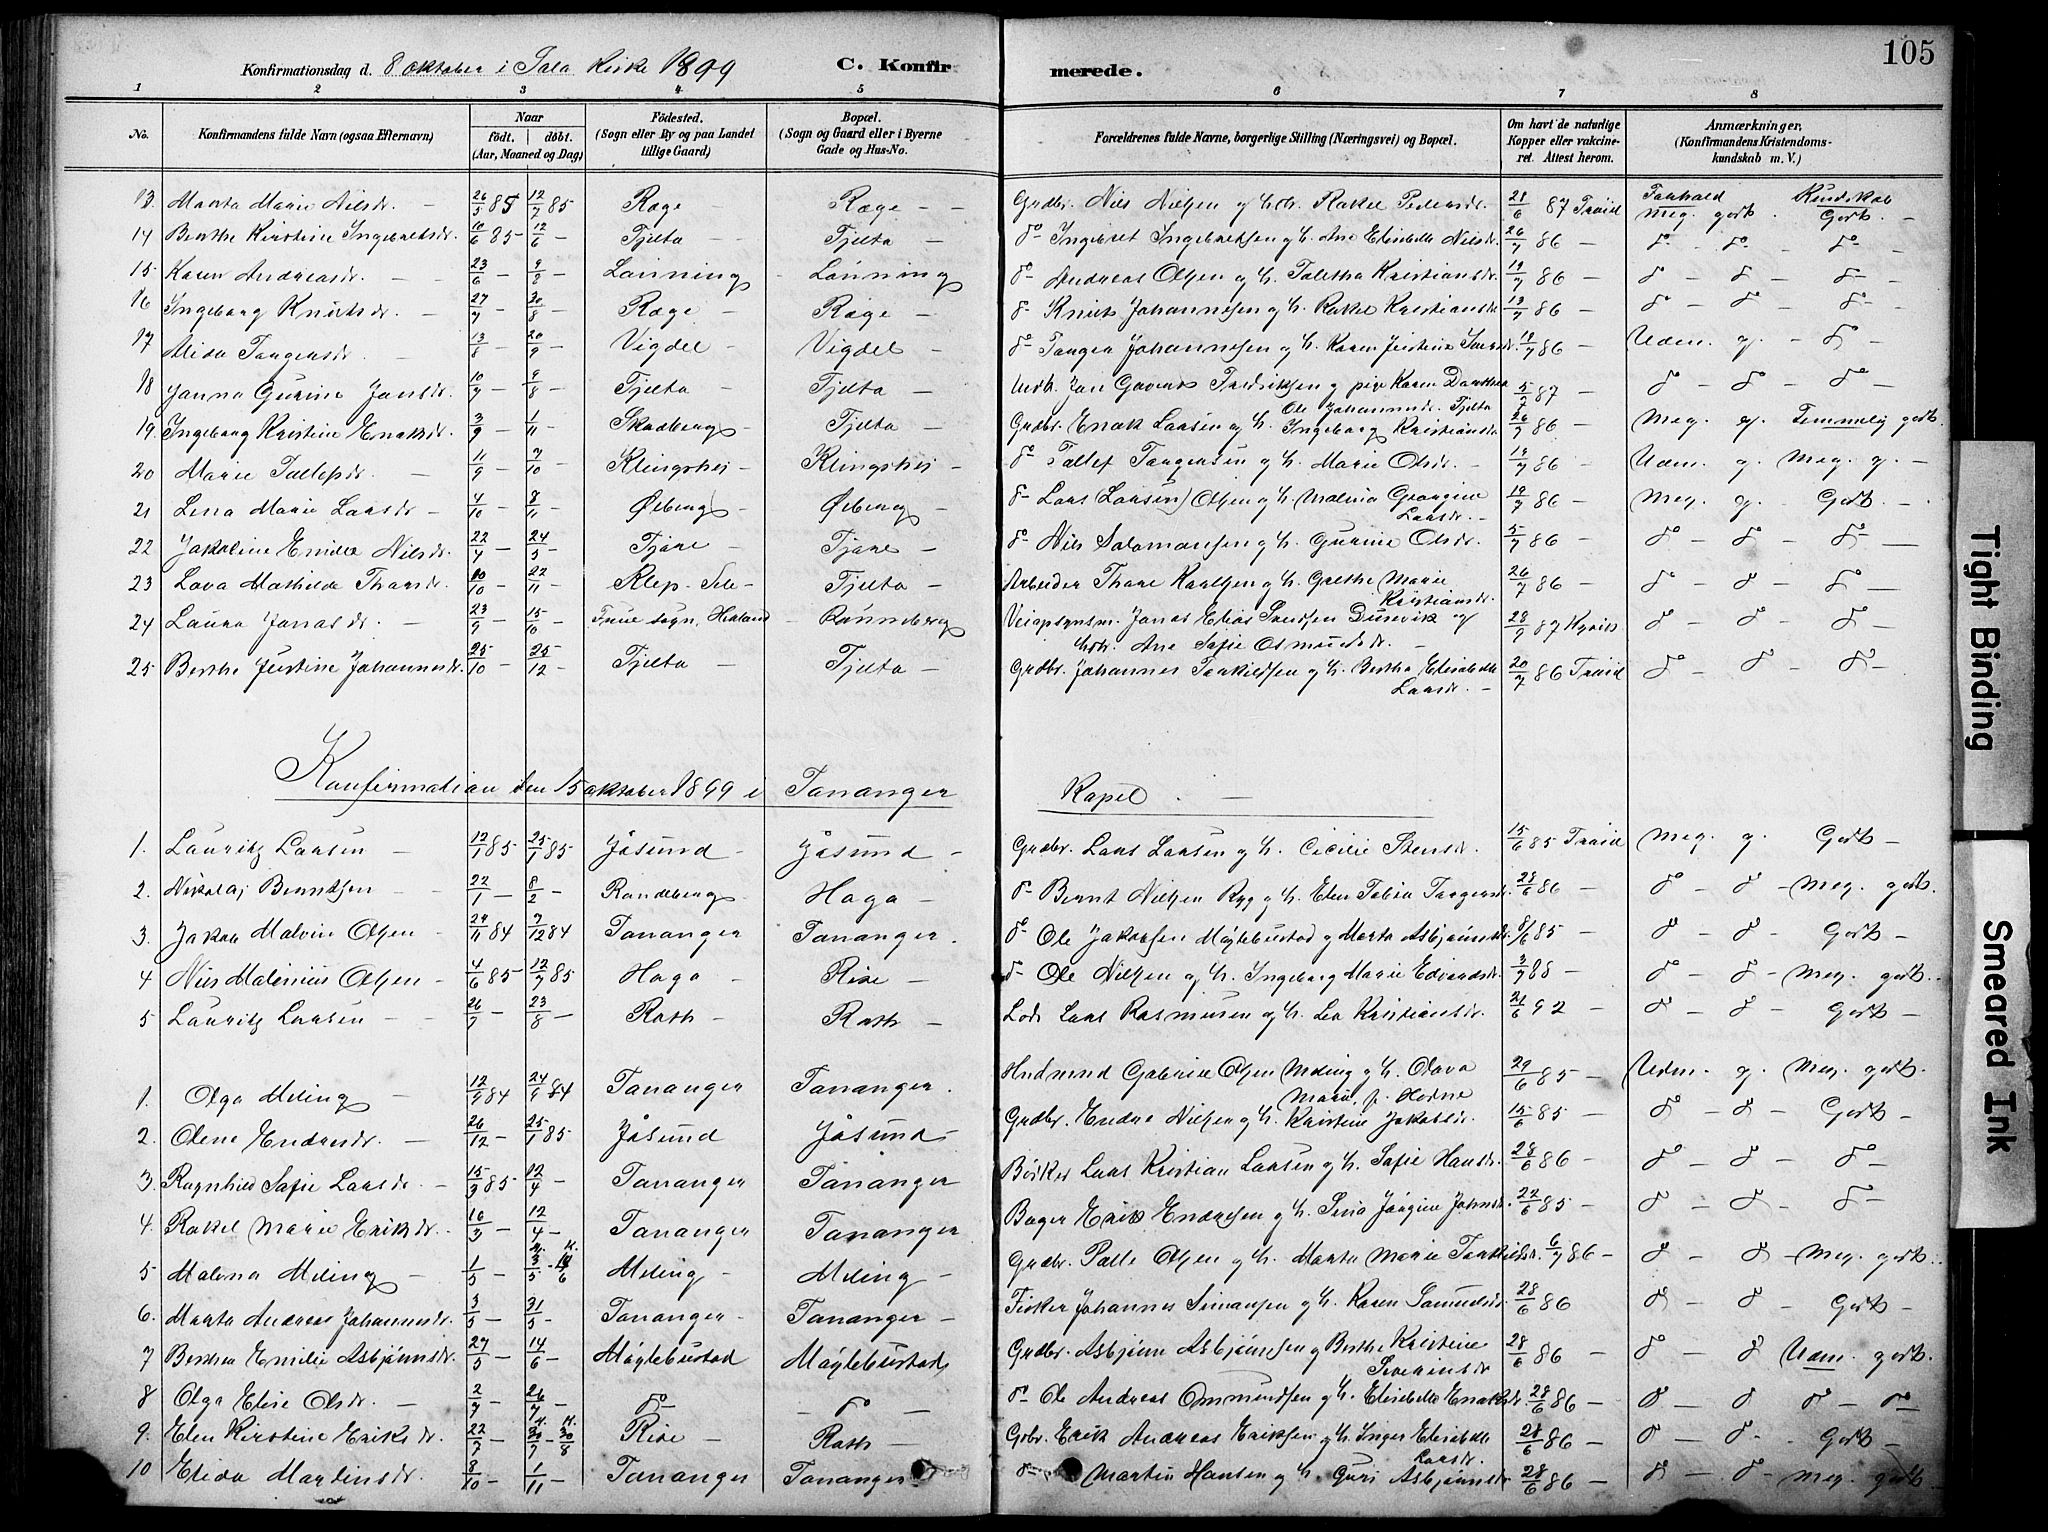 105
Konfirmationsdag d. 8 oktober i Sola Kirke 1899 C. Konfirmerede.
1 2 3 4 5 6 7 8
No. Konfirmandens fulde Navn (ogsaa Efternavn) Naar født. døbt. (Aar, Maaned og Dag) Fødested. (Sogn eller By og paa Landet tillige Gaard) Bopæl. (Sogn og Gaard eller i Byerne Gade og Hus-No. Forældrenes fulde Navne, borgerlige Stilling (Næringsvei) og Bopæl. Om havt de naturlige Kopper eller vakcineret. Attest herom. Anmærkninger, (Konfirmandens Kristendomskundskab m. V.)
13. Marta Marie Nilsdr. 26/5 85 12/7 85 Ræge – Ræge – Grdbr. Nils Nielsen og Hstr. Rakel Pedersdr. 28/6 87 Traid Forhold meg. godt. Kundskab Godt. –
14 Berthe Kirstine Ingebretsdr. 10/6 85 – 12/6 – Tjelta – Tjelta – do Ingebret Ingebretsen og H. Ane Elisabeth Nilsdr. 26/7 86 – do – do – do –
15. Karen Andreasdr. – 23/6 – 9/8 – Lønning Lønning do Andreas Olsen og H. Taletha Kristiansdr. 19/7 86 – do – do – do –
16 Ingeborg Knutsdr. – 27/7 – 30/8 – Ræge – Ræge – do Knut Johannesen og H. Rakel Kristiansdr. 19/7 86 – do – do – do –
17 Alida Torgersdr. – 13/8 – 20/9 – Vigdel – Vigdel – do Torger Johannesen og H. Karen Jertine 19/7 86 – Udm. g. – do –
18 Janna Gurine Jansdr. 10/7 – 9/8 – Tjelta – Tjelta – Ungk. Jan Fredriksen og pige Karen Dorthea Ole Johannesdr. Tjelta 5/7 87 – do – do – do –
19. Ingeborg Kristine Enoksdr. 3/9 – 1/11 – Skadberg – Tjelta – Grdbr. Enok Larsen og H. Ingeborg Kristiansdr. 26/7 86 – Meg. g. Temmelig godt.
20 Marie Tollefsdr. – 11/9 – 7/10 – Klingshei – Klingshei – do Tollef Torgersen og H. Marie Olsdr. – 19/7 86 – Udm. g. Meg. g. –
21 Lena Marie Larsdr – 4/10 – 8/11 – Øiberg – Øiberg – do Lars (Larsen) Olsen og H. Malena Georgine Larsdr. – 19/7 86 – Meg. g. – Godt. –
22 Jakoline Emilie Nilsdr. 22/4 – 24/5 – Tjore – Tjore – do Nils Salomonsen og H. Gurine Olsdr. 5/7 86 – do – do – do –
23 Lova Mathilde Thorsdr. 10/10 – 22/11 – Klep. – Tjelta – Arbeider Thore Karlsen og H. Grethe Marie Kristiansdr. 26/7 86 – do – do – do –
24 Laura Jonasdr. – 23/9 – 15/10 – Frue sogn, Hetland Rønneberg Veiopsynsm. Jonas Elias Dunvik og Hstr. Ane Sofie Osmundsdr. – 28/9 87 do – do – do –
25 Berthe Jertine Johannesdr. 25/10 – 25/12 – Tjelta – Tjelta – Grdbr. Johannes Torkildsen og H. Bertha Elisabeth Larsdr. – 20/7 86 Traid do – do – do –
Konfirmation den 15 oktober 1899 i Tananger Kapel. –
1. Lauritz Larsen – 12/1 85 – 25/1 85 – Jåsund – Jåsund – Grdbr. Lars Larsen og H. Cicilie Stensdr. 15/6 85 Traid Meg. g. Godt –
2. Nikolaj Berntsen – 22/1 – 8/2 – Randeberg – Haga – do Bernt Nielsen Ryg og H. Elen Tobia Torgersdr. 28/6 86 – do – do – Meg. godt.
3. Jakob Malvin Olsen – 24/11 84 7/12 84 Tananger Tananger. do Ole Jakobsen Møglebustad og Marta Asbjørnsdr. 8/6 85 – do – do – Godt –
4 Nils Malenius Olsen – 4/6 85 – 12/7 85 Haga – Risе – do Ole Nielsen og H. Ingeborg Marie Edvardsdr. 3/7 88 – do – do – Meg. godt.
5 Lauritz Larsen – 26/7 – 23/8 – Roth – Roth – Lods Lars Rasmusen og H. Lea Kristiansdr. 21/6 92 – do – do – Godt –
1. Olga Meling – 12/9 84 24/9 84 Tananger Tananger. Gabriel Olsen Meling og H. Olava Marie, f. Horne 29/6 85 – Udm. g. Meg. godt.
2. Olene Endresdr. – 26/12 – 25/1 85 – Jåsund Jåsund – Grdbr. Endre Nielsen og H. Kristine Jakobsdr. 15/6 85 – do – do – Godt –
3. Ragnhild Sofie Larsdr. – 15/3 85 – 12/4 – Tananger Tananger Bøtker Lars Kristian Larsen og H. Sofie Hansdr. 28/6 86 – do – do – do –
4. Rakel Marie Eriksdr. 16/3 – 12/4 – Tananger Tananger Bager Erik Endresen og H. Sina Jørgine Johnsdr. 22/6 85 – do – do – do –
5 Malena Meling – 1/5 – H. 3/5 – K. 14/6 Meling – Meling – Grdbr. Palle Olsen og H. Marta Marie Torkildsdr. 6/7 86 – do – do – Meg. godt.
6. Marta Andrea Johannesdr. 3/5 – 31/5 – Tananger – Tananger – Fisker Johannes Simonsen og H. Karen Samuelsdr. 28/6 86 do – do – Godt –
7 Berthea Emilie Asbjørnsdr. 27/5 – 14/6 – Møglebustad Møglebustad Grdbr. Asbjørn Asbjørnsen og Berthe Kristine Severinsdr 28/6 86 – do – do Udm. godt.
8 Olga Elise Olsdr. – 2/7 – 26/7 – do – – do – do Ole Andreas Ommundsen og H. Elisabeth Enoksdr. 28/6 86 – do – do do – do –
9. Elen Kirstine Eriksdr. 22/7 – H. 30/7 – K. 30/8 Rise – Roth – Grbr. Erik Andreas Eriksen og H. Inger Elisabeth Larsdr. 28/6 86 – do – do – Godt –
10 Elida Martinsdr. 8/10 – 1/11 – Tananger Tananger – do – Martin Hansen og H. Guri Asbjørnsdr. 28/6 86 – do – do – Meg. godt
Tight Binding
Smeared Ink